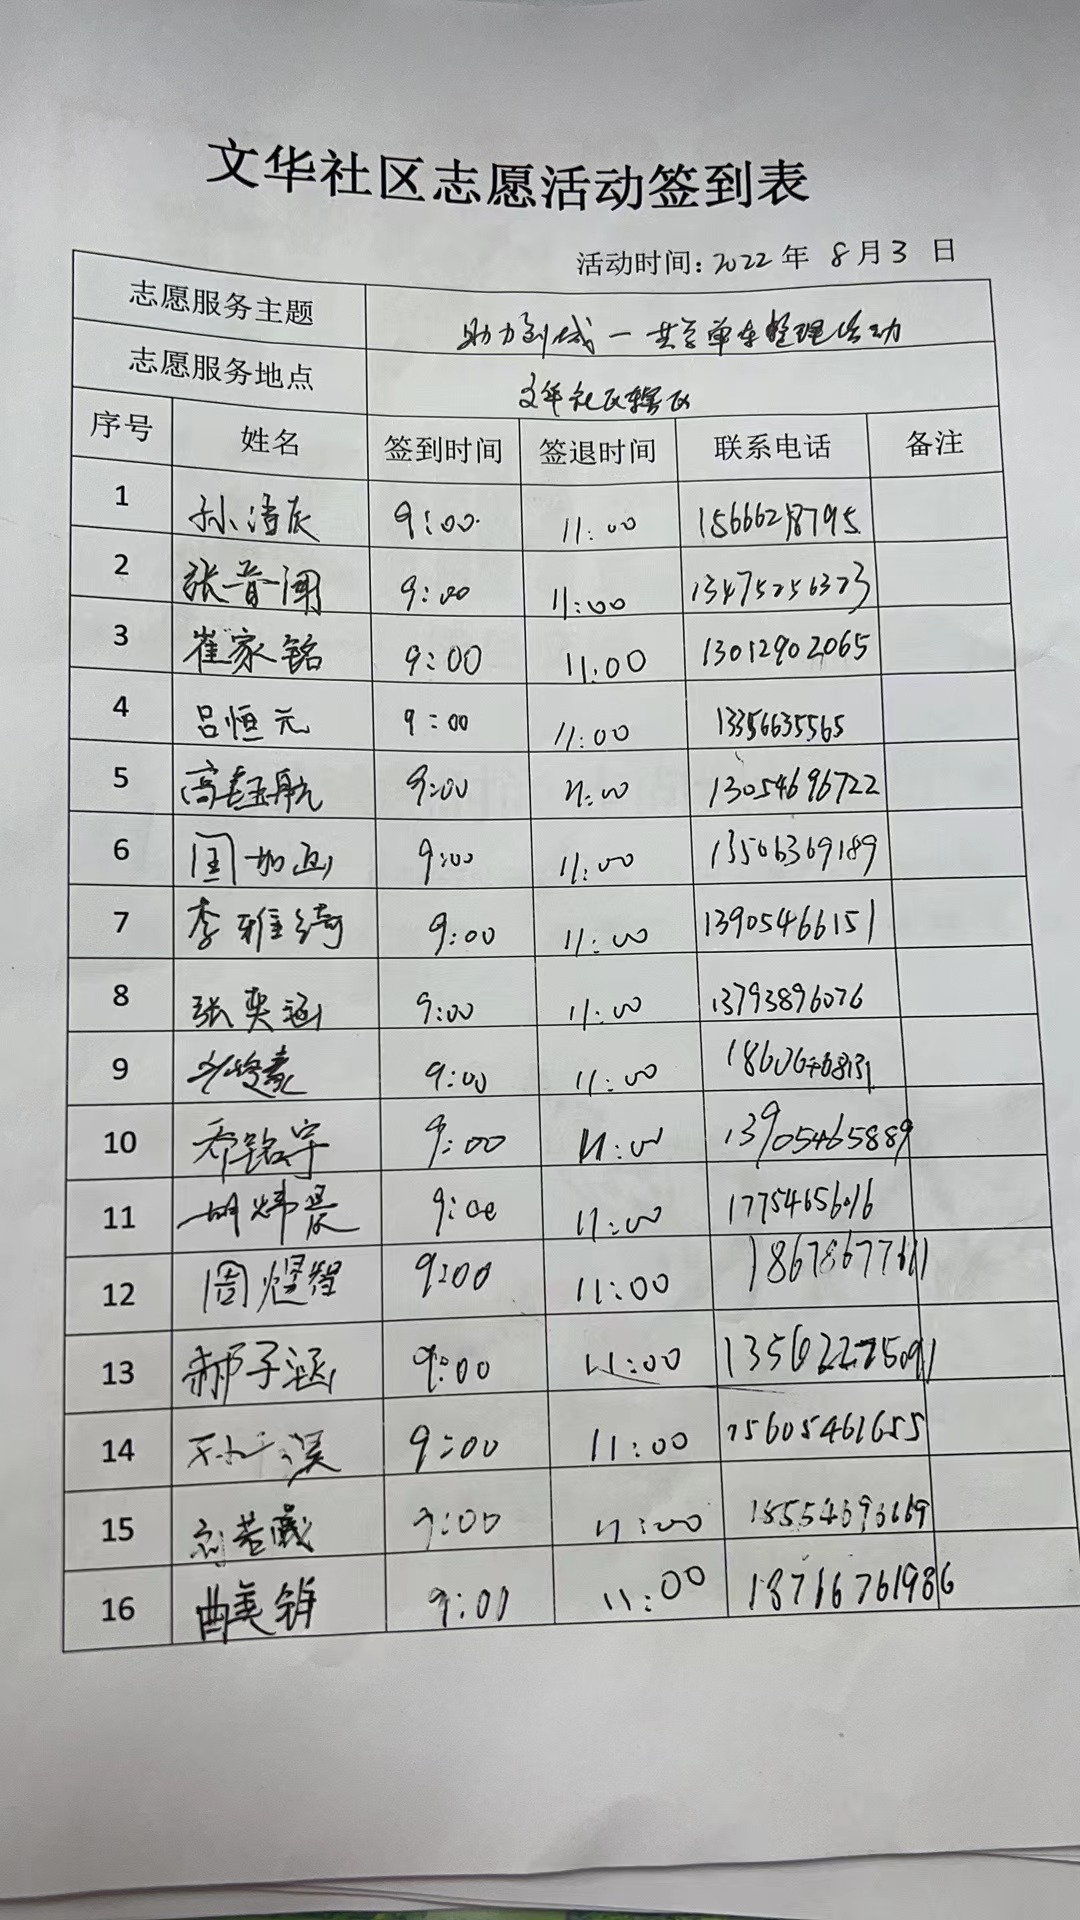 文华社区志愿活动签到表
活动时间：2022 年 8月3 日
志愿服务主题 助力创城一共享单车整理活动
志愿服务地点 文华社区辖区
序号 姓名 签到时间 签退时间 联系电话 备注
1 孙浩辰 9:00 11:00 15666287795
2 张晋闻 9:00 11:00 13475256373
3 崔家铭 9:00 11:00 13012902065
4 吕恒元 9:00 11:00 13356635565
5 高 航 9:00 11:00 13054696722
6 9:00 11:00 13506369189
7 李雅绮 9:00 11:00 13905466151
8 张奕涵 9:00 11:00 13793896076
9 9:00 11:00
10 乔铭宇 9:00 11:00 13905465889
11 胡炜晨 9:00 11:00 17754656016
12 周煜智 9:00 11:00
13 郝子涵 9:00 11:00
14 9:00 11:00 15605461655
15 刘若曦 9:00 11:00
16 曲美钰 9:00 11:00 18716761986